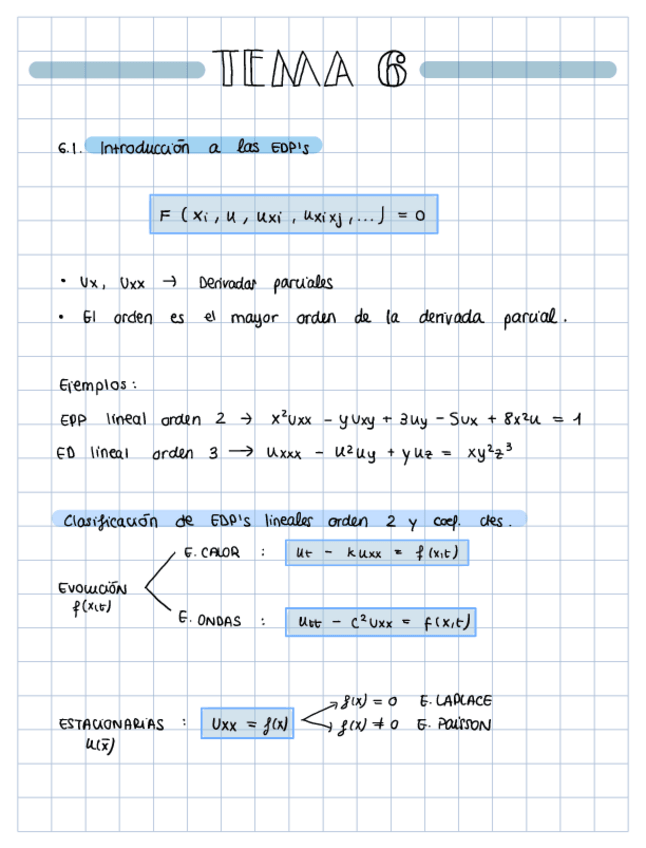 TEMA 6
6.1. Introducción a las EDP's
F (xi, u, uxi, uxixj, ...) = 0
• Ux, Uxx → Derivadas parciales
• El orden es el mayor orden de la derivada parcial.
Ejemplos:
EPP lineal orden 2 → x²uxx - yuxy + 3uy - 5ux + 8x²u = 1
ED lineal orden 3 → uxxx - u²uy + yuz = xy²z³
Clasificación de EDP's lineales orden 2 y coef. ctes.
E. CALOR : ut - kuxx = f(x,t)
EVOLUCIÓN
f(x,t)
E. ONDAS : utt - c²uxx = f(x,t)
f(x) = 0 E. LAPLACE
ESTACIONARIAS : Uxx = f(x)
f(x) ≠ 0 E. POISSON
u(x̄)